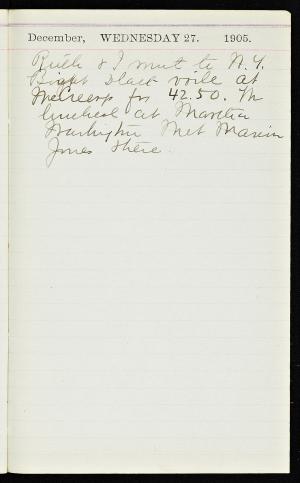 December, WEDNESDAY 27. 1905.
Ruth & I went to N.Y.
Bought black voile at
McCreerys for 42.50. We
lunched at Martha
Washington Met Marion
Jones there.